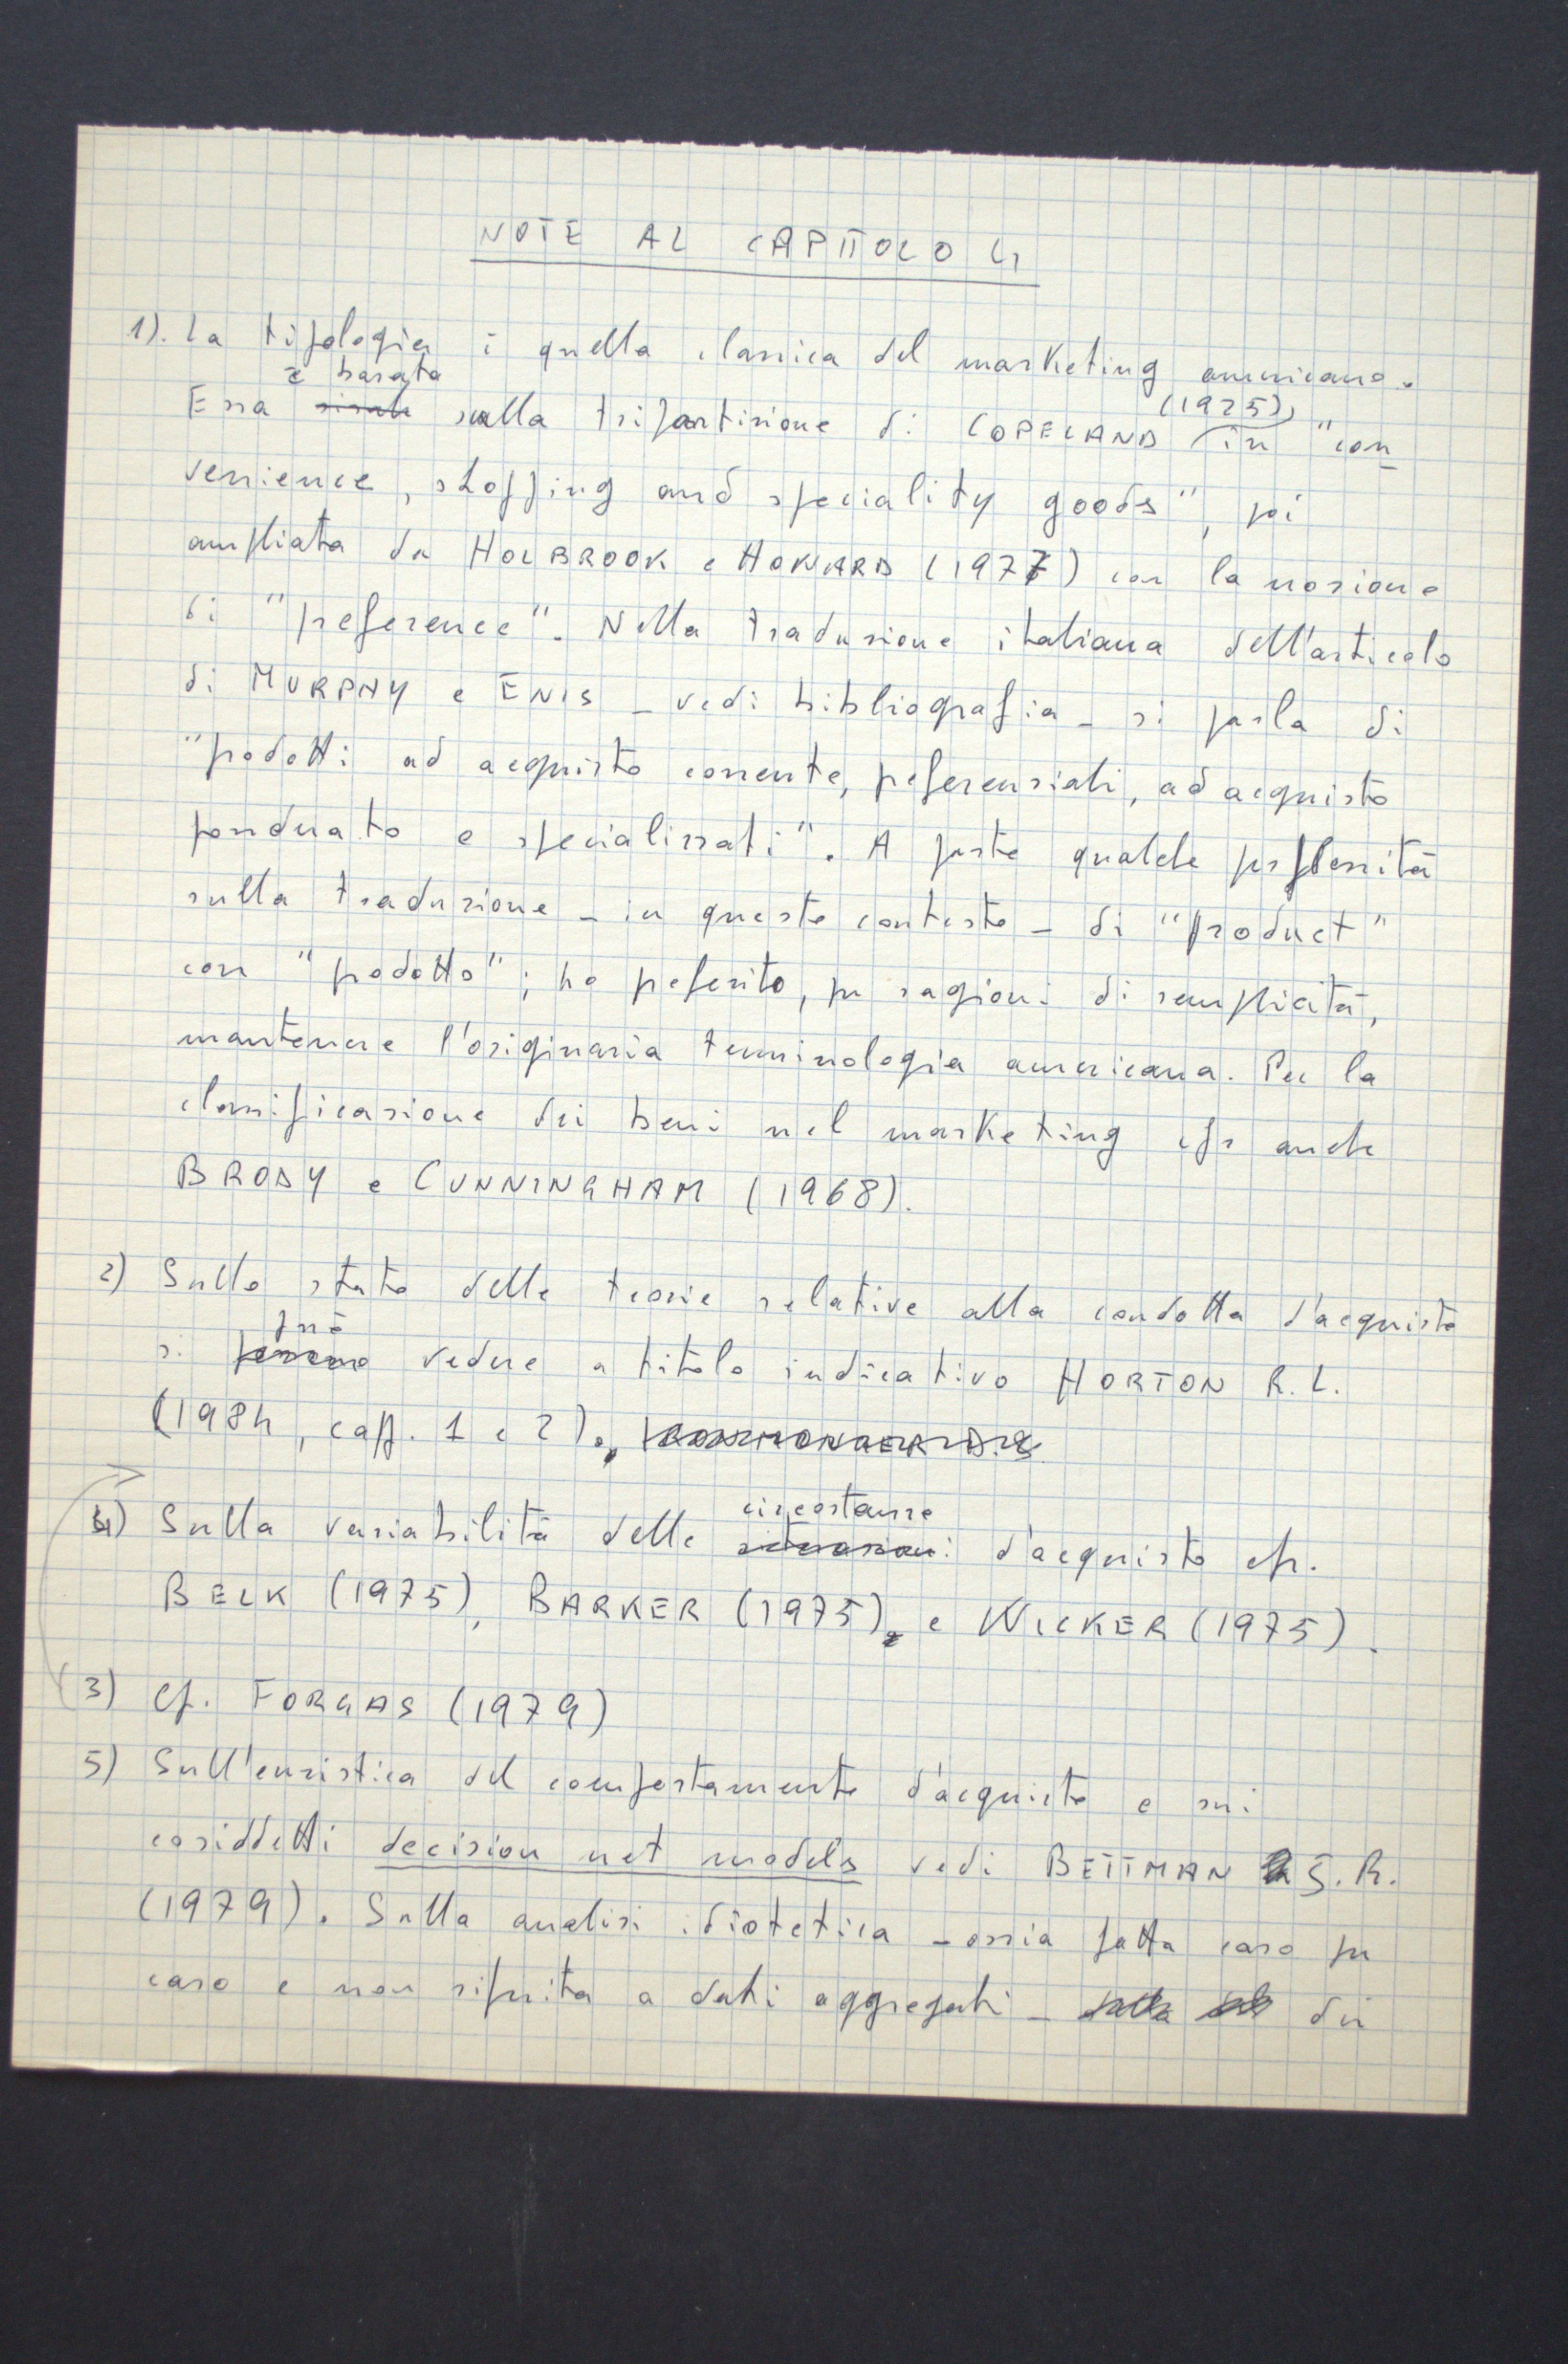 NOTE AL CAPITOLO 4
1). La tipologia è quella classica del marketing americano.
Essa è basata sulla tripartizione di COPELAND (1925), in "con
venience, shopping and speciality goods", poi
ampliata da HOLBROOK e HOWARD (1977) con la nozione
di "preference". Nella traduzione italiana dell'articolo
di MURPHY e ENIS _ vedi bibliografia _ si parla di
"prodotti ad acquisto corrente, preferenziali, ad acquisto
ponderato e specializzati". A parte qualche perplessità
sulla traduzione _ in questo contesto _ di "product"
con "prodotto"; ho preferito, per ragioni di semplicità,
mantenere l'originaria terminologia americana. Per la
classificazione dei beni nel marketing cfr anche
BRODY e CUNNINGHAM (1968).
2) Sullo stato delle teorie relative alla condotta d'acquisto
si può vedere a titolo indicativo HORTON R.L.
(1984, capp. 1 e 2).
4) Sulla variabilità delle circostanze d'acquisto cfr.
BELK (1975), BARKER (1975), e WICKER (1975).
3) Cf. FORGAS (1979)
5) Sull'euristica del comportamento d'acquisto e sui
cosiddetti decision net models vedi BETTMAN J.R.
(1979). Sulla analisi idiotetica _ ossia fatta caso per
caso e non riferita a dati aggregati _ dei